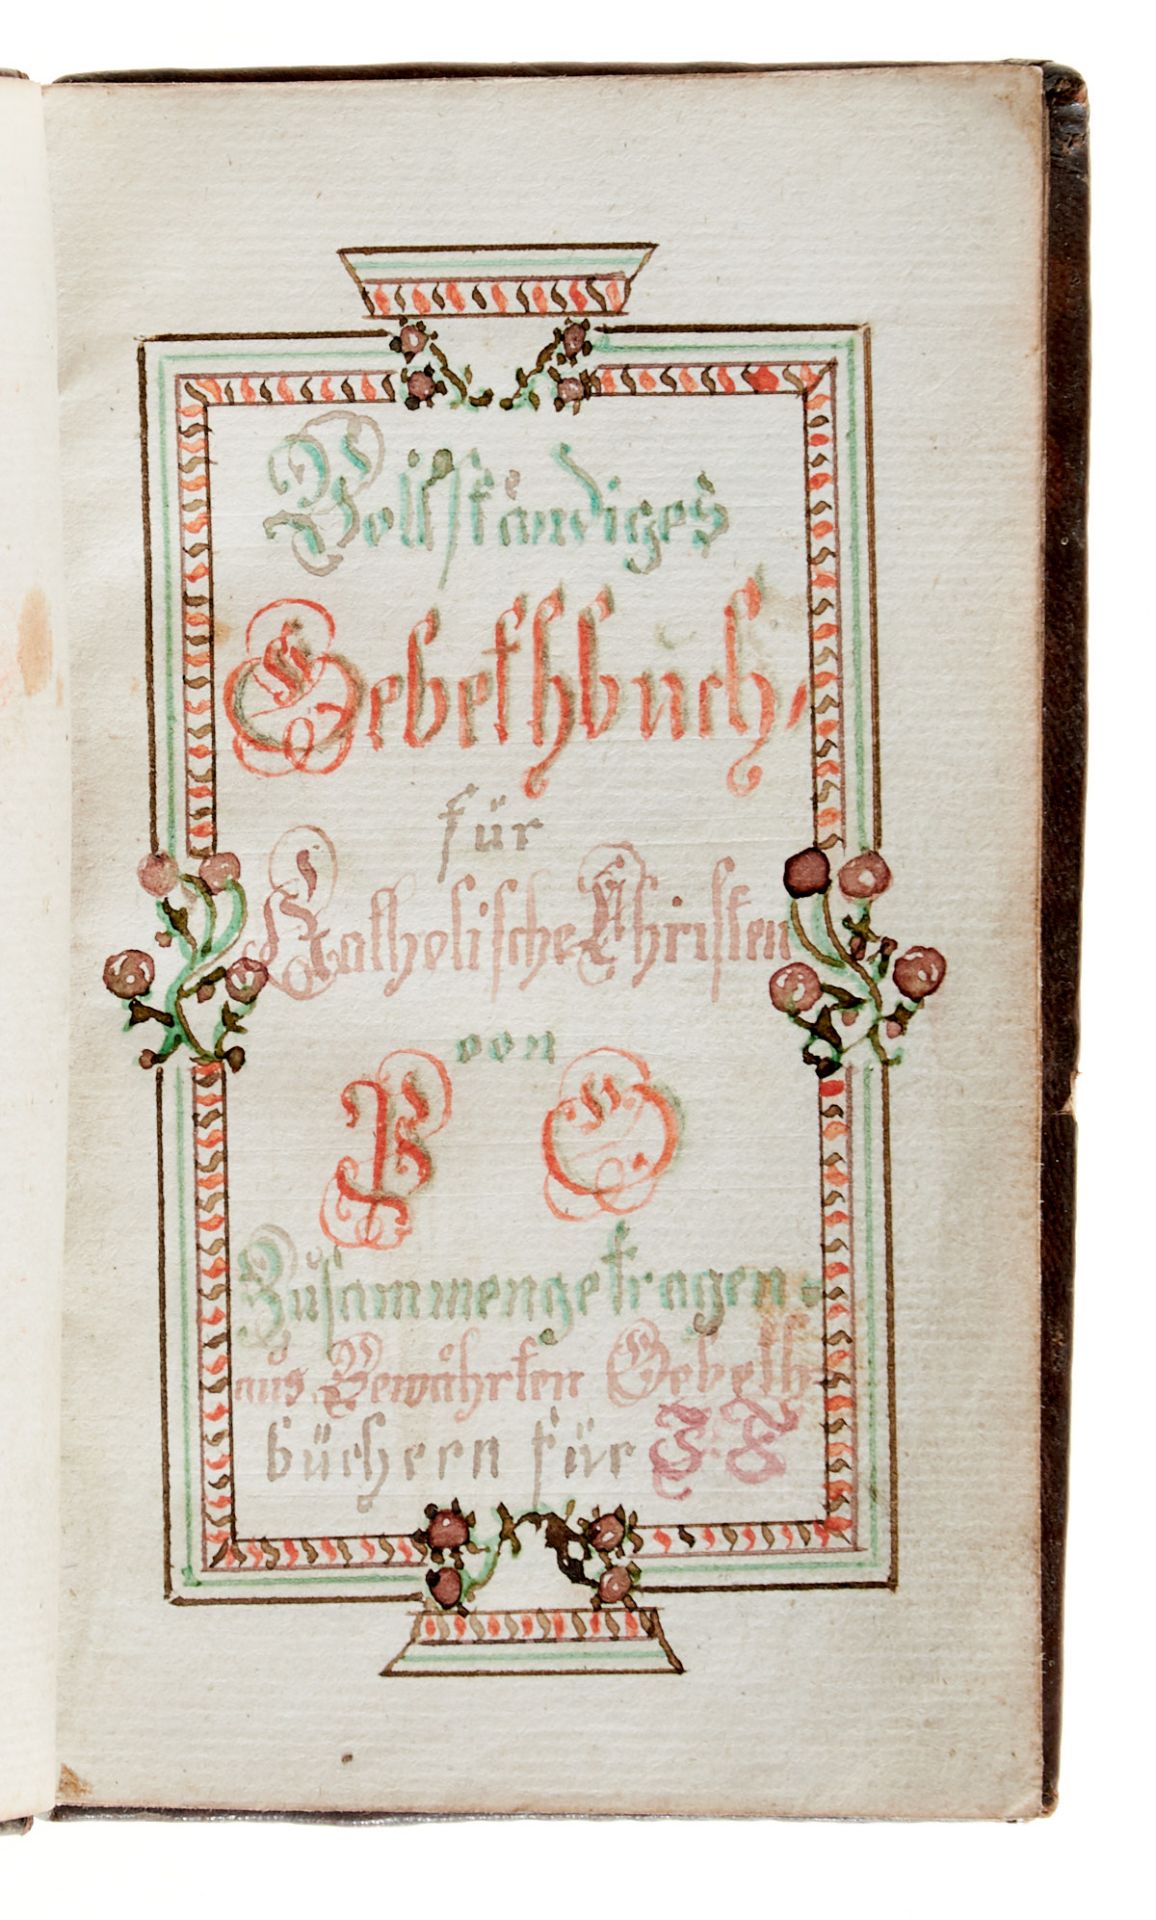 Vollständiges
Gebethbuch,
für
Katholische Christen
von
P O
Zusammengetragen.
aus Bewährten Gebeth-
büchern für F. F.